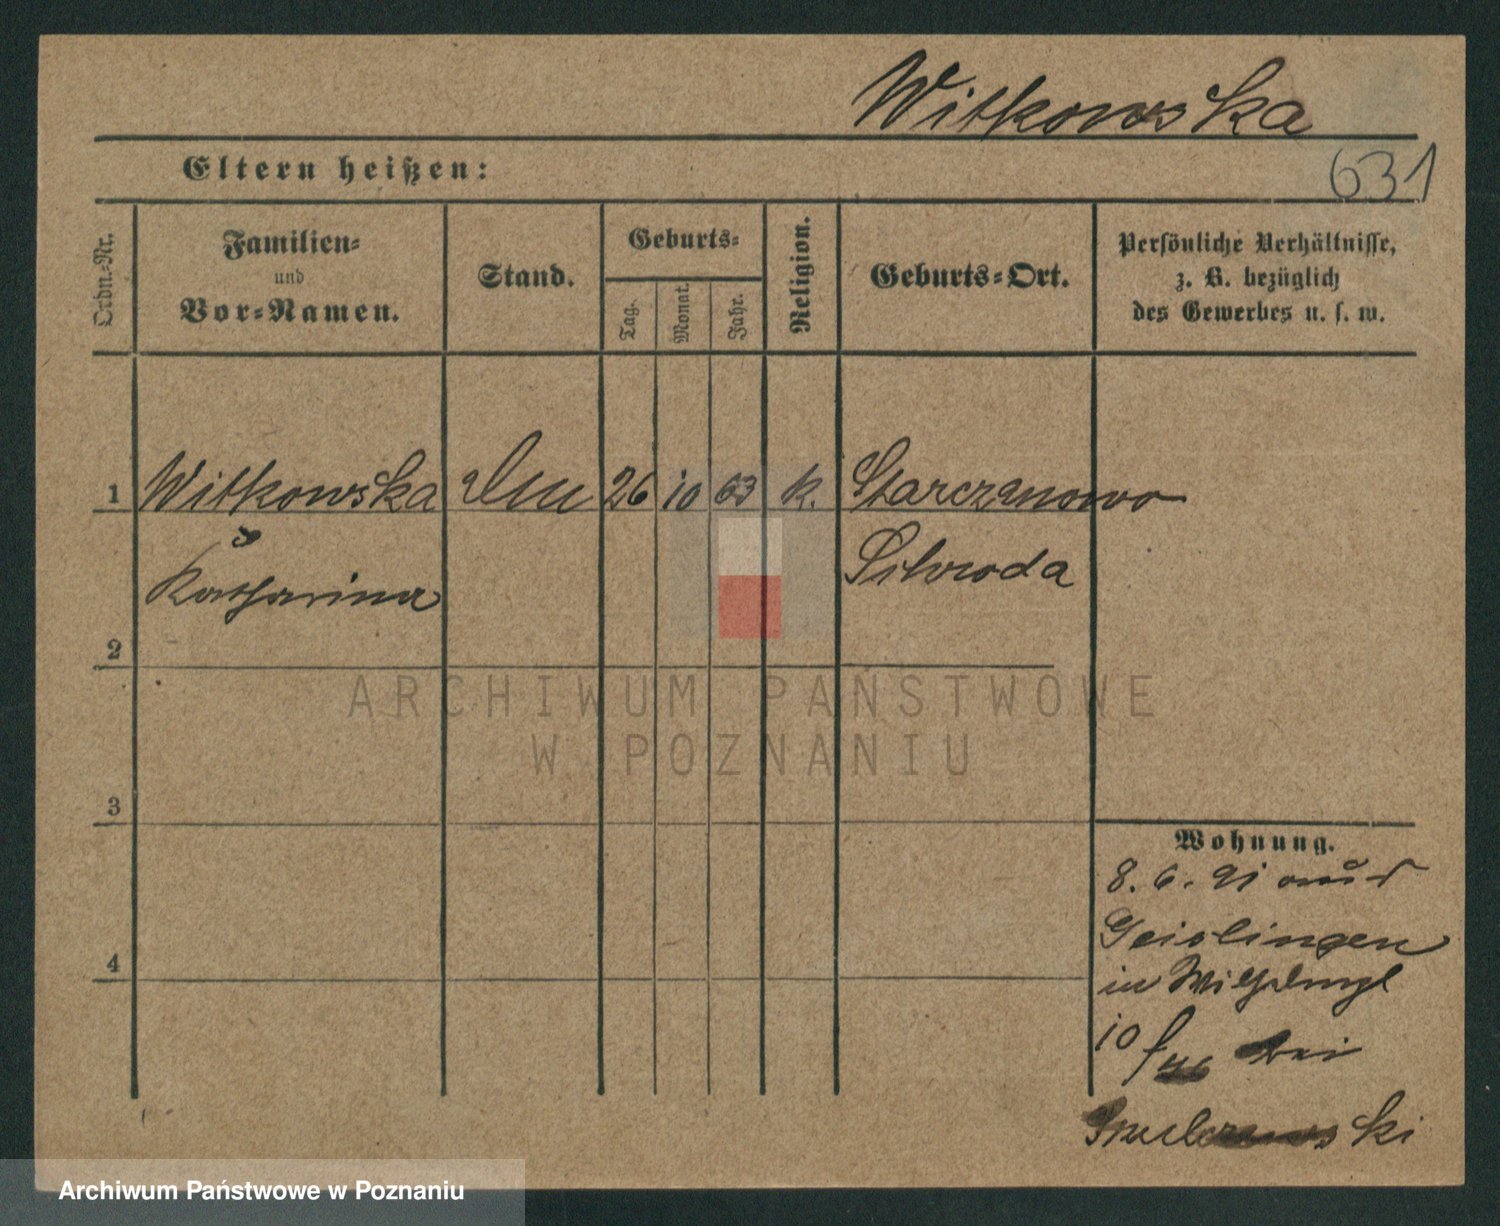 Witkowska
Eltern heißen:
631
Ordn.-Nr.
Familien-
und
Vor-Namen.
Stand.
Geburts-
Tag.
Monat.
Jahr.
Religion.
Geburts-Ort.
Persönliche Verhältnisse,
z. B. bezüglich
des Gewerbes u. s. w.
1 Witkowska 26 10 63 k. Starczanowo
Katharina
2
3
4
Wohnung.
8. 6. 91 aus
Geislingen
in
10 bei
ARCHIWUM PAŃSTWOWE
W POZNANIU
Archiwum Państwowe w Poznaniu